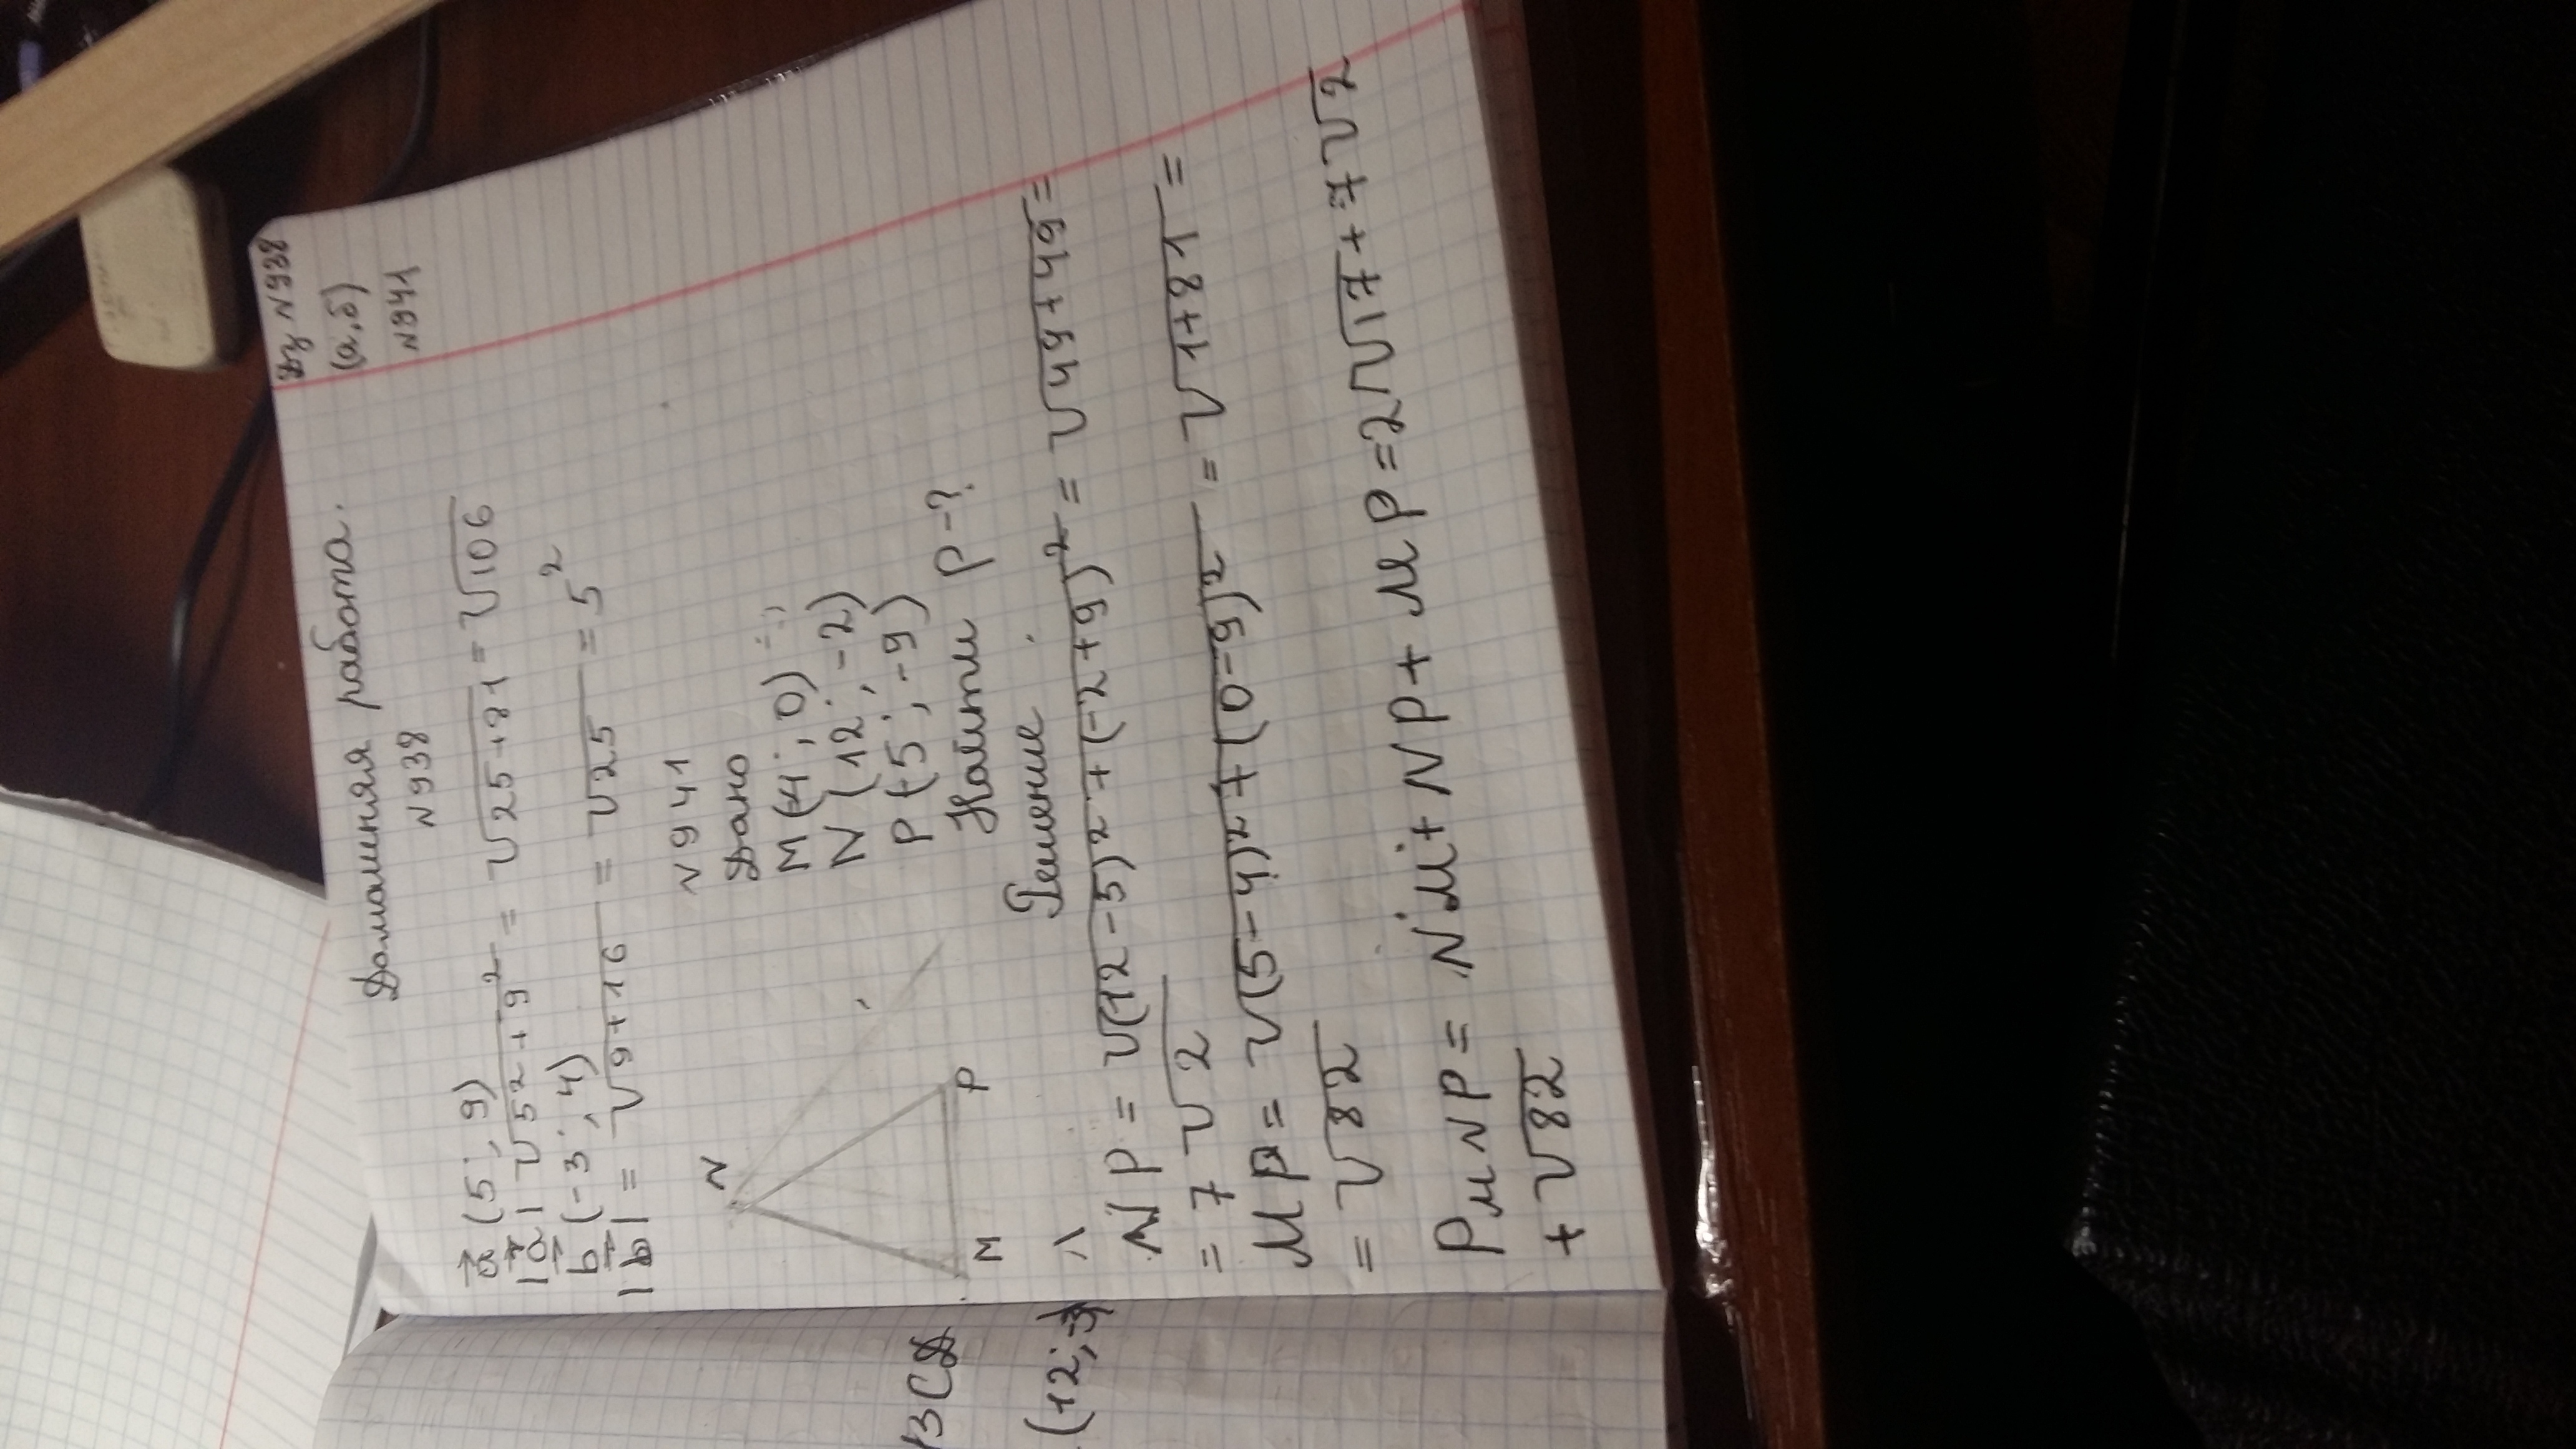 Дз №938
(а,б)
№941
Домашняя работа.
№938
a (5; 9)
|a| √5² + 9² = √25+81 = √106
b (-3; 4)
|b| = √9+16 = √25 = 5²
№941
Дано
M(4; 0)
N(12; -2)
P(5; -9)
Найти P-?
N
M
P
Решение
NP = √(12-5)²+(-2+9)² = √49+49 =
= 7√2
MP = √(5-4)²+(0-9)² = √1+81 =
= √82
PMNP = NM + NP + MP = 2√17 + 7√2
+ √82
ВСД
(12;